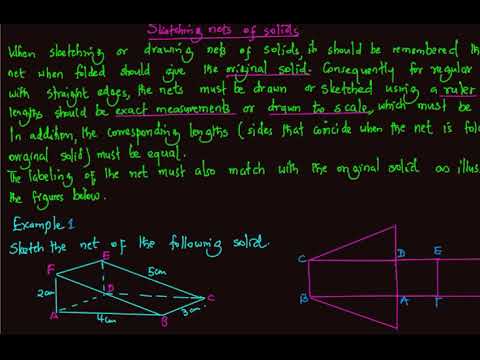 Sketching nets of solids
When sketching or drawing nets of solids, it should be remembered th
net when folded should give the original solid. Consequently for regular
with straight edges, the nets must be drawn or sketched using a ruler
lengths should be exact measurements or drawn to scale, which must be
In addition, the corresponding lengths (sides that coincide when the net is fol
original solid) must be equal.
The labeling of the net must also match with the original solid as illus
the figures below.
Example 1
Sketch the net of the following solid.
E
F
5cm
2cm
D
C
A
4cm
B
3cm
C
D
E
B
A
F